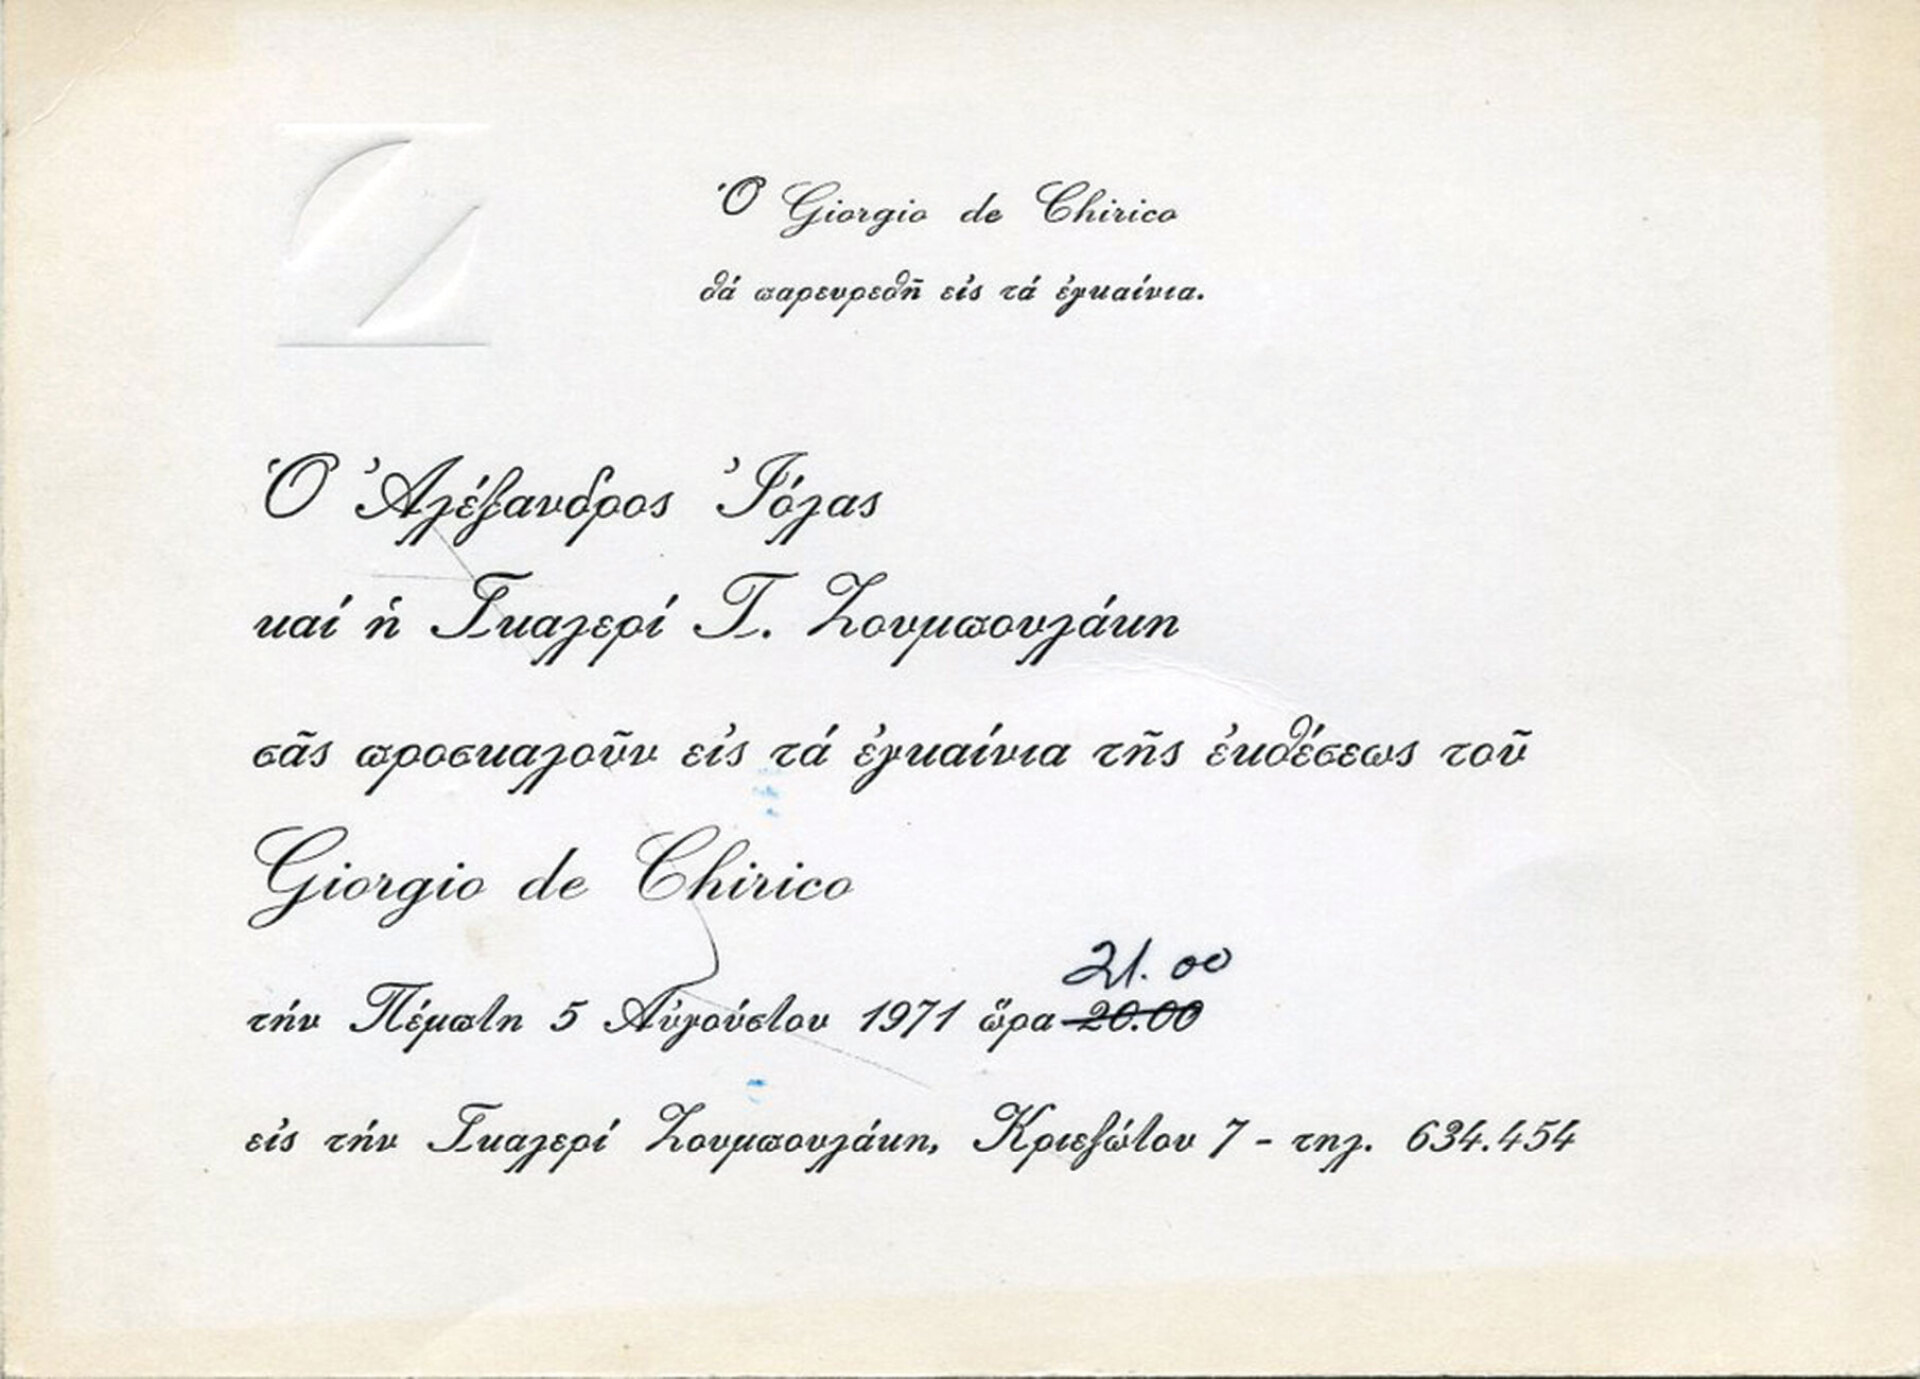 Z
Ὁ Giorgio de Chirico
θά παρευρεθῆ εἰς τά ἐγκαίνια.
Ὁ Ἀλέξανδρος Ἰόλας
καί ἡ Γκαλερί Γ. Ζουμπουλάκη
σᾶς προσκαλοῦν εἰς τά ἐγκαίνια τῆς ἐκθέσεως τοῦ
Giorgio de Chirico
21.00
τήν Πέμπτη 5 Αὐγούστου 1971 ὥρα 20.00
εἰς τήν Γκαλερί Ζουμπουλάκη, Κριεζώτου 7 - τηλ. 634.454